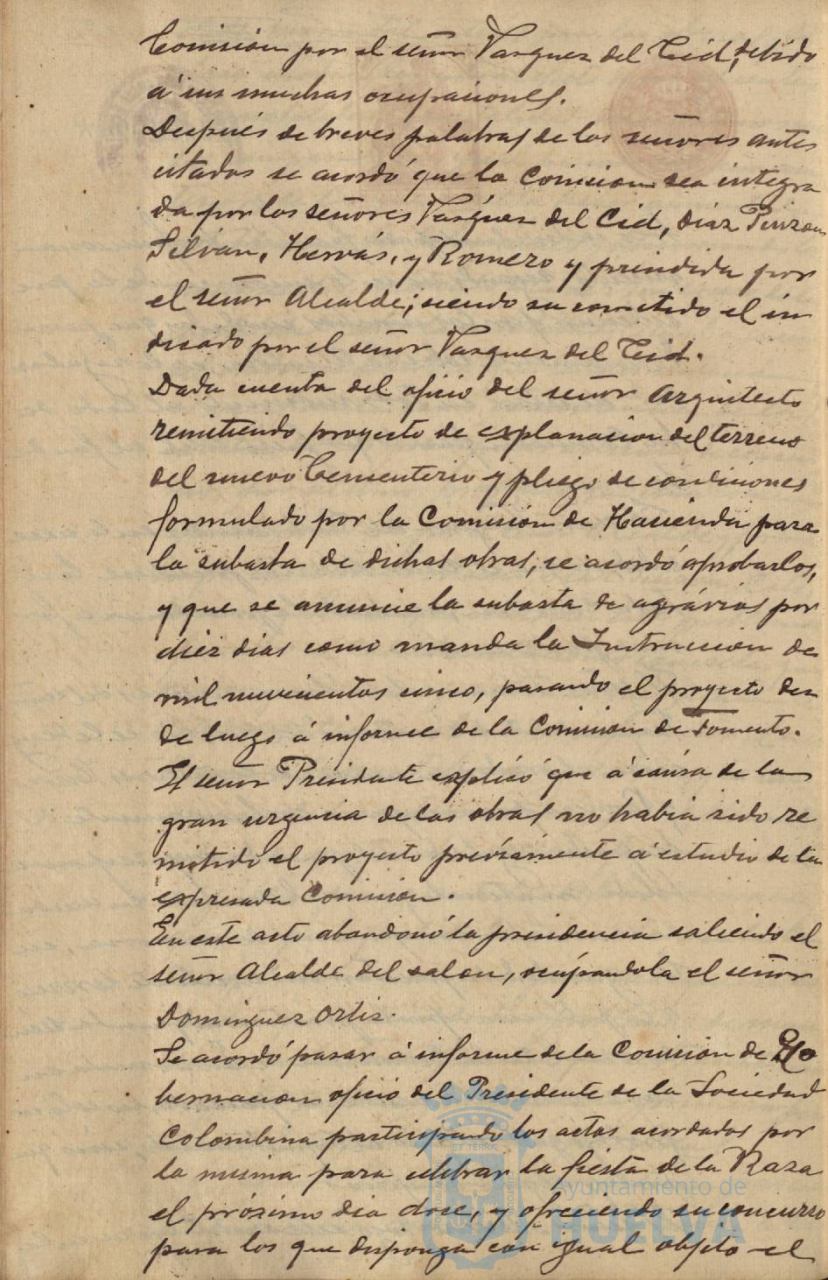 Comisión por el señor Vazquez del Cid, debido
á sus muchas ocupaciones.
Después de breves palabras de los señores antes
citados se acordó que la Comision sea integra
da por los señores Vázquez del Cid, Diaz Pinzon
Silván, Hervás, y Romero y presidida por
el señor Alcalde; siendo su cometido el in
dicado por el señor Vazquez del Cid.
Dada cuenta del oficio del señor Arquitecto
remitiendo proyecto de explanacion del terreno
del nuevo Cementerio y pliego de condiciones
formulado por la Comisión de Hacienda para
la subasta de dichas obras, se acordó aprobarlos,
y que se anuncie la subasta de agrávios por
diez dias como manda la Instruccion de
mil nuvecientos cinco, pasando el proyecto des
de luego á informe de la Comision de Fomento.
El señor Presidente explicó que á causa de la
gran urgencia de las obras no habia sido re
mitido el proyecto previamente á estudio de la
expresada Comision.
En este acto abandonó la presidencia saliendo el
señor Alcalde del salon, ocupandola el señor
Dominguez Ortiz.
Se acordó pasar á informe de la Comision de Go
bernacion oficio del Presidente de la Sociedad
Colombina participando los actos acordados por
la misma para celebrar la fiesta de la Raza
el próximo dia doce, y ofreciendo su concurso
para los que disponga con igual objeto el
Ayuntamiento de
HUELVA